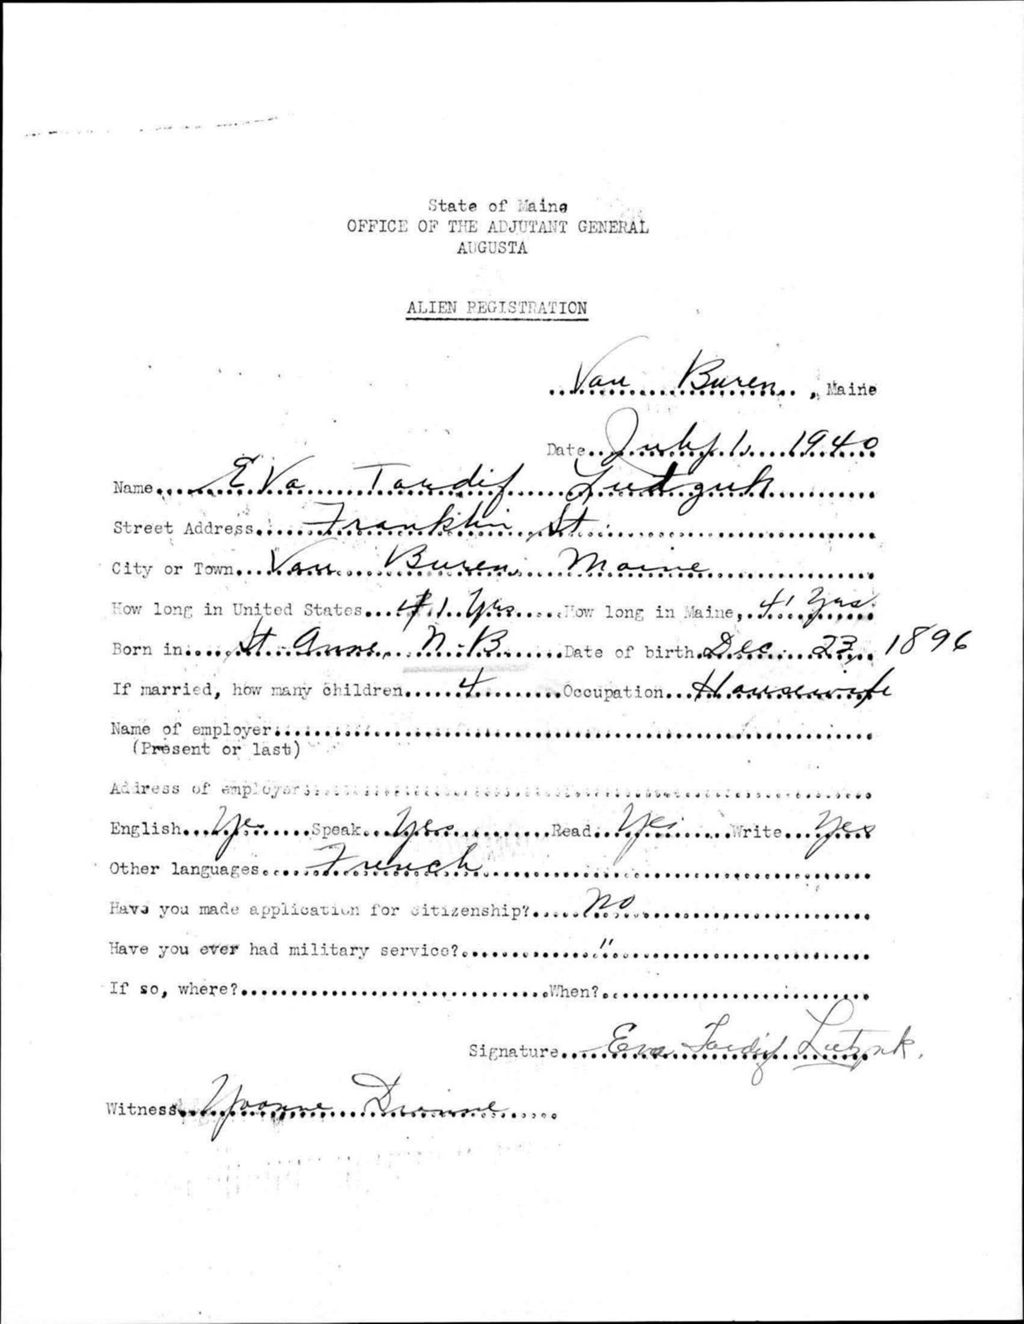 State of Maine
OFFICE OF THE ADJUTANT GENERAL
AUGUSTA
ALIEN REGISTRATION
Van Buren, Maine
Date July 1. 1940
Name Eva Tardif Ludzuk
Street Address Franklin St.
City or Town Van Buren, Maine
How long in United States 41 Yrs How long in Maine 41 Yrs.
Born in St. Anne, N.B. Date of birth Dec. 23, 1896
If married, how many children 4 Occupation Housewife
Name of employer
(Present or last)
Address of employer
English Yes Speak Yes Read Yes Write Yes
Other languages French
Have you made application for citizenship? No
Have you ever had military service? "
If so, where? When?
Signature Eva Tardif
Witness Yvonne